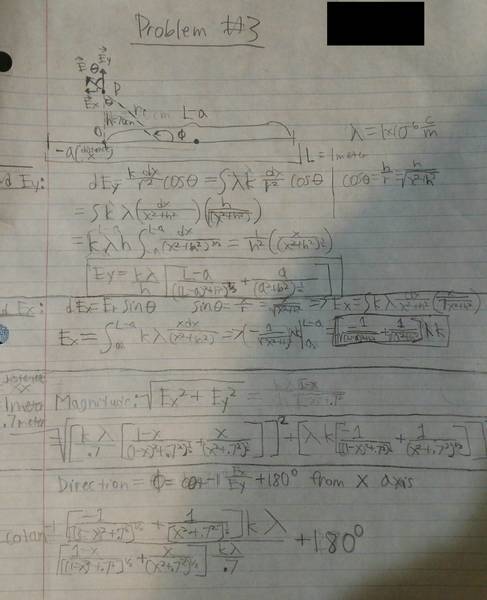 Problem #3
E⃗ θ E⃗y
P
E⃗x θ
h=70cm r
L-a
O ϕ λ=1x10^-6 C/m
-a L=1meter
d Ey: dEy = k dx/r² cosθ = ∫λk dx/r² cosθ | cosθ = h/r = h/√(x²+h²)
= ∫kλ(dx/(x²+h²))(h/(x²+h²)^½)
= kλh ∫_{-a}^{L-a} dx/(x²+h²)^{3/2} = 1/h² (x/(x²+h²)^½)
Ey = kλ/h [(L-a)/((L-a)²+h²)^½ + a/(a²+h²)^½]
d Ex: dEx = Er sinθ sinθ = x/r = => Ex = ∫kλ dx/(x²+h²)
Ex = ∫_{-a}^{L-a} kλ xdx/(x²+h²) =>
distance
x
1 meter
.7 meter
Magnitude: √(Ex² + Ey²) =
= √([kλ/.7 [(1-x)/((1-x)²+.7²)^½ + x/(x²+.7²)^½]]² + [λk[-1/((1-x)²+.7²)^½ + 1/(x²+.7²)^½]]²)
Direction = ϕ = Ex/Ey + 180° from x axis
cotan^-1 ([-1/((1-x)²+.7²)^½ + 1/(x²+.7²)^½] kλ / [(1-x)/((1-x)²+.7²)^½ + x/(x²+.7²)^½] kλ/.7) + 180°